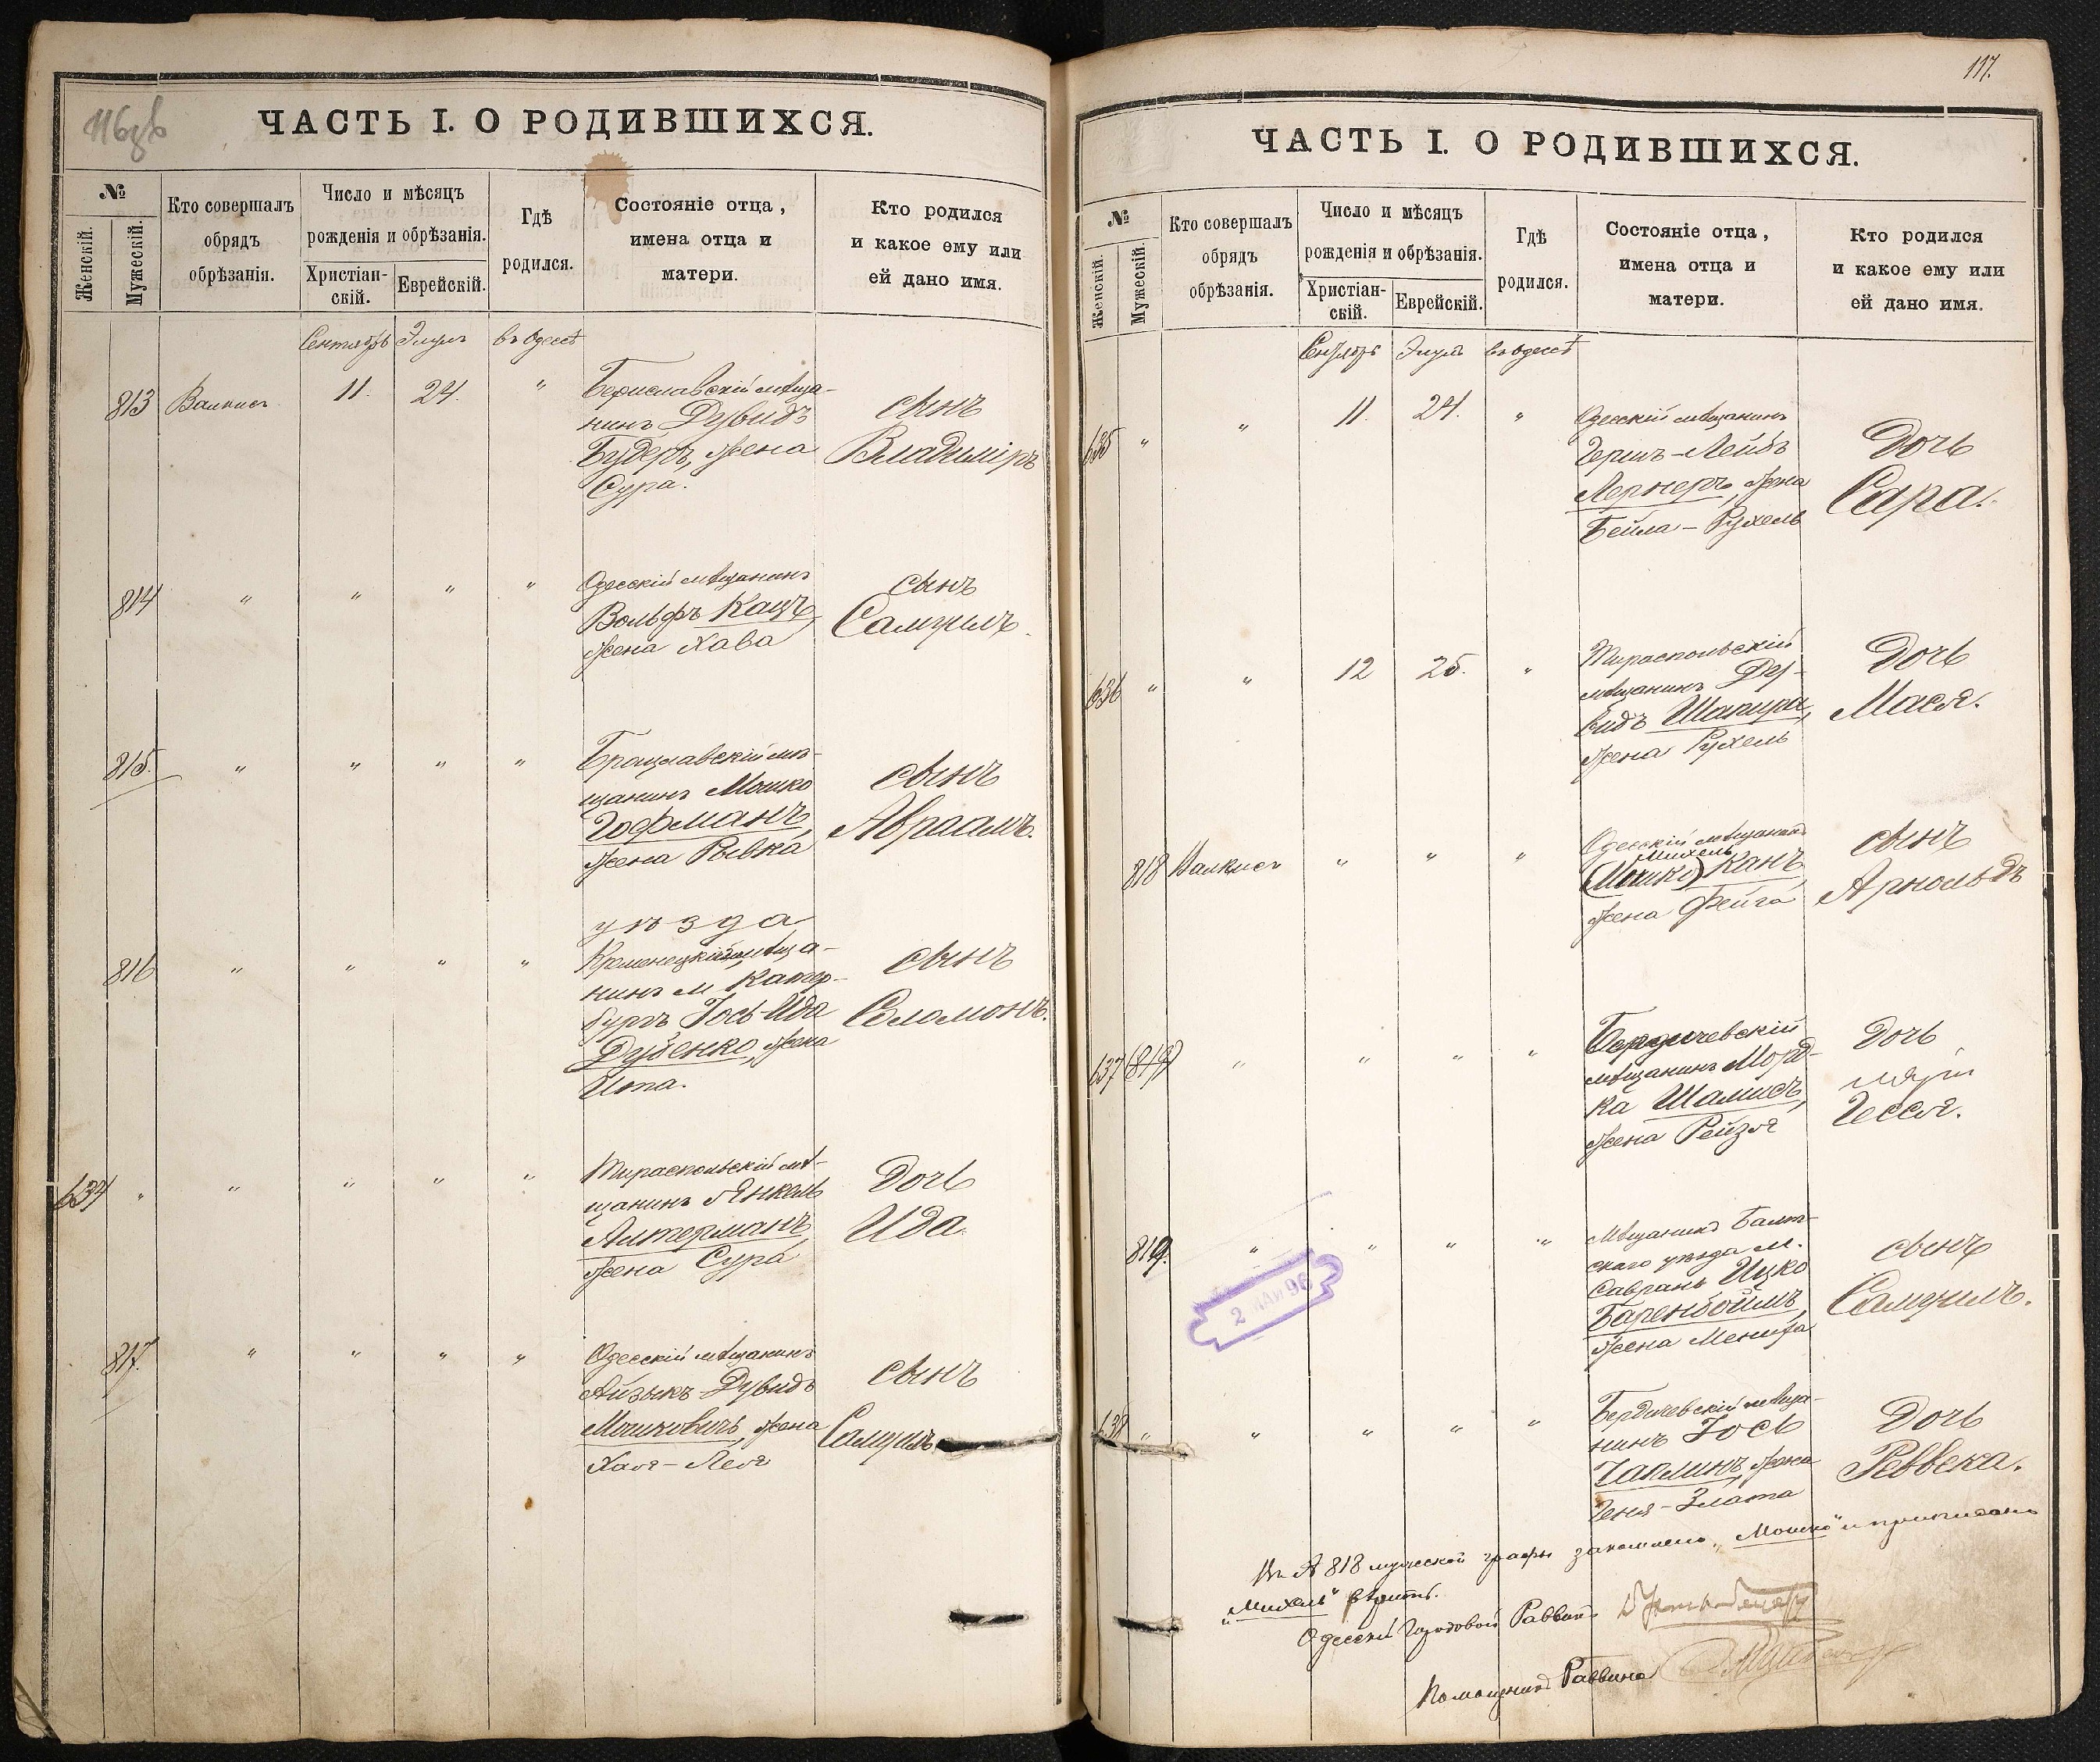 116об
ЧАСТЬ I. О РОДИВШИХСЯ.
№
Женскій.
Мужескій.
Кто совершалъ
обрядъ
обрѣзанія.
Число и мѣсяцъ
рожденія и обрѣзанія.
Христіан-
скій.
Еврейскій.
Гдѣ
родился.
Состояніе отца,
имена отца и
матери.
Кто родился
и какое ему или
ей дано имя.
Сентябрь Элулъ въ Одессѣ
813 Валкисъ 11. 24. "
Бериславскій мѣща-
нинъ Дувидъ
Будеръ, жена
Сура.
сынъ
Владиміръ
814 " " " "
Одесскій мѣщанинъ
Вольфъ Кацъ,
жена Хава
сынъ
Самуилъ.
815. " " " "
Брацлавскій мѣ-
щанинъ Мошко
Гофманъ,
жена Рывка
сынъ
Авраамъ.
816 " " " "
уѣзда
Кременецкій мѣща-
нинъ м Катер-
бургъ Іось-Ида
Дубенко, жена
Ита.
сынъ
Соломонъ.
634 " " " " "
Тираспольскій мѣ-
щанинъ Янкель
Актерманъ,
жена Сура
Дочь
Ида.
817. " " " "
Одесскій мѣщанинъ
Айзыкъ-Дувидъ
Мошковичъ, жена
Хая-Лея
сынъ
Самуилъ
117.
ЧАСТЬ I. О РОДИВШИХСЯ.
№
Женскій.
Мужескій.
Кто совершалъ
обрядъ
обрѣзанія.
Число и мѣсяцъ
рожденія и обрѣзанія.
Христіан-
скій.
Еврейскій.
Гдѣ
родился.
Состояніе отца,
имена отца и
матери.
Кто родился
и какое ему или
ей дано имя.
Сентябрь Элулъ въ Одессѣ
635 " " 11. 24. "
Одесскій мѣщанинъ
Гершъ-Лейбъ
Лернеръ, жена
Бейла-Рухель
Дочь
Сара.
636 " " 12 25. "
Тираспольскій
мѣщанинъ Ду-
видъ Шапира,
жена Рухель
Дочь
Мася.
818 Валкисъ " " "
Одесскій мѣщанинъ
Михель
(Мошко) Канъ,
жена Фейга
сынъ
Арнольдъ
637 (819) " " " "
Бердичевскій
мѣщанинъ Морд-
ка Шамисъ,
жена Рейзя
Дочь
Гесся.
819. " " " "
Мѣщанинъ Балт-
скаго уѣзда м.
Саврань Ицко
Баренбоймъ,
жена Менифа
сынъ
Самуилъ.
2 МАЙ 96
638 " " " " "
Бердичевскій мѣща-
нинъ Іось
Чаплинъ, жена
Геня-Злата
Дочь
Реввека.
Въ № 818 мужеской графы "Мошко" и приписано
"Михель" вѣрить.
Одесскій Городовой Раввинъ
Помощникъ Раввина